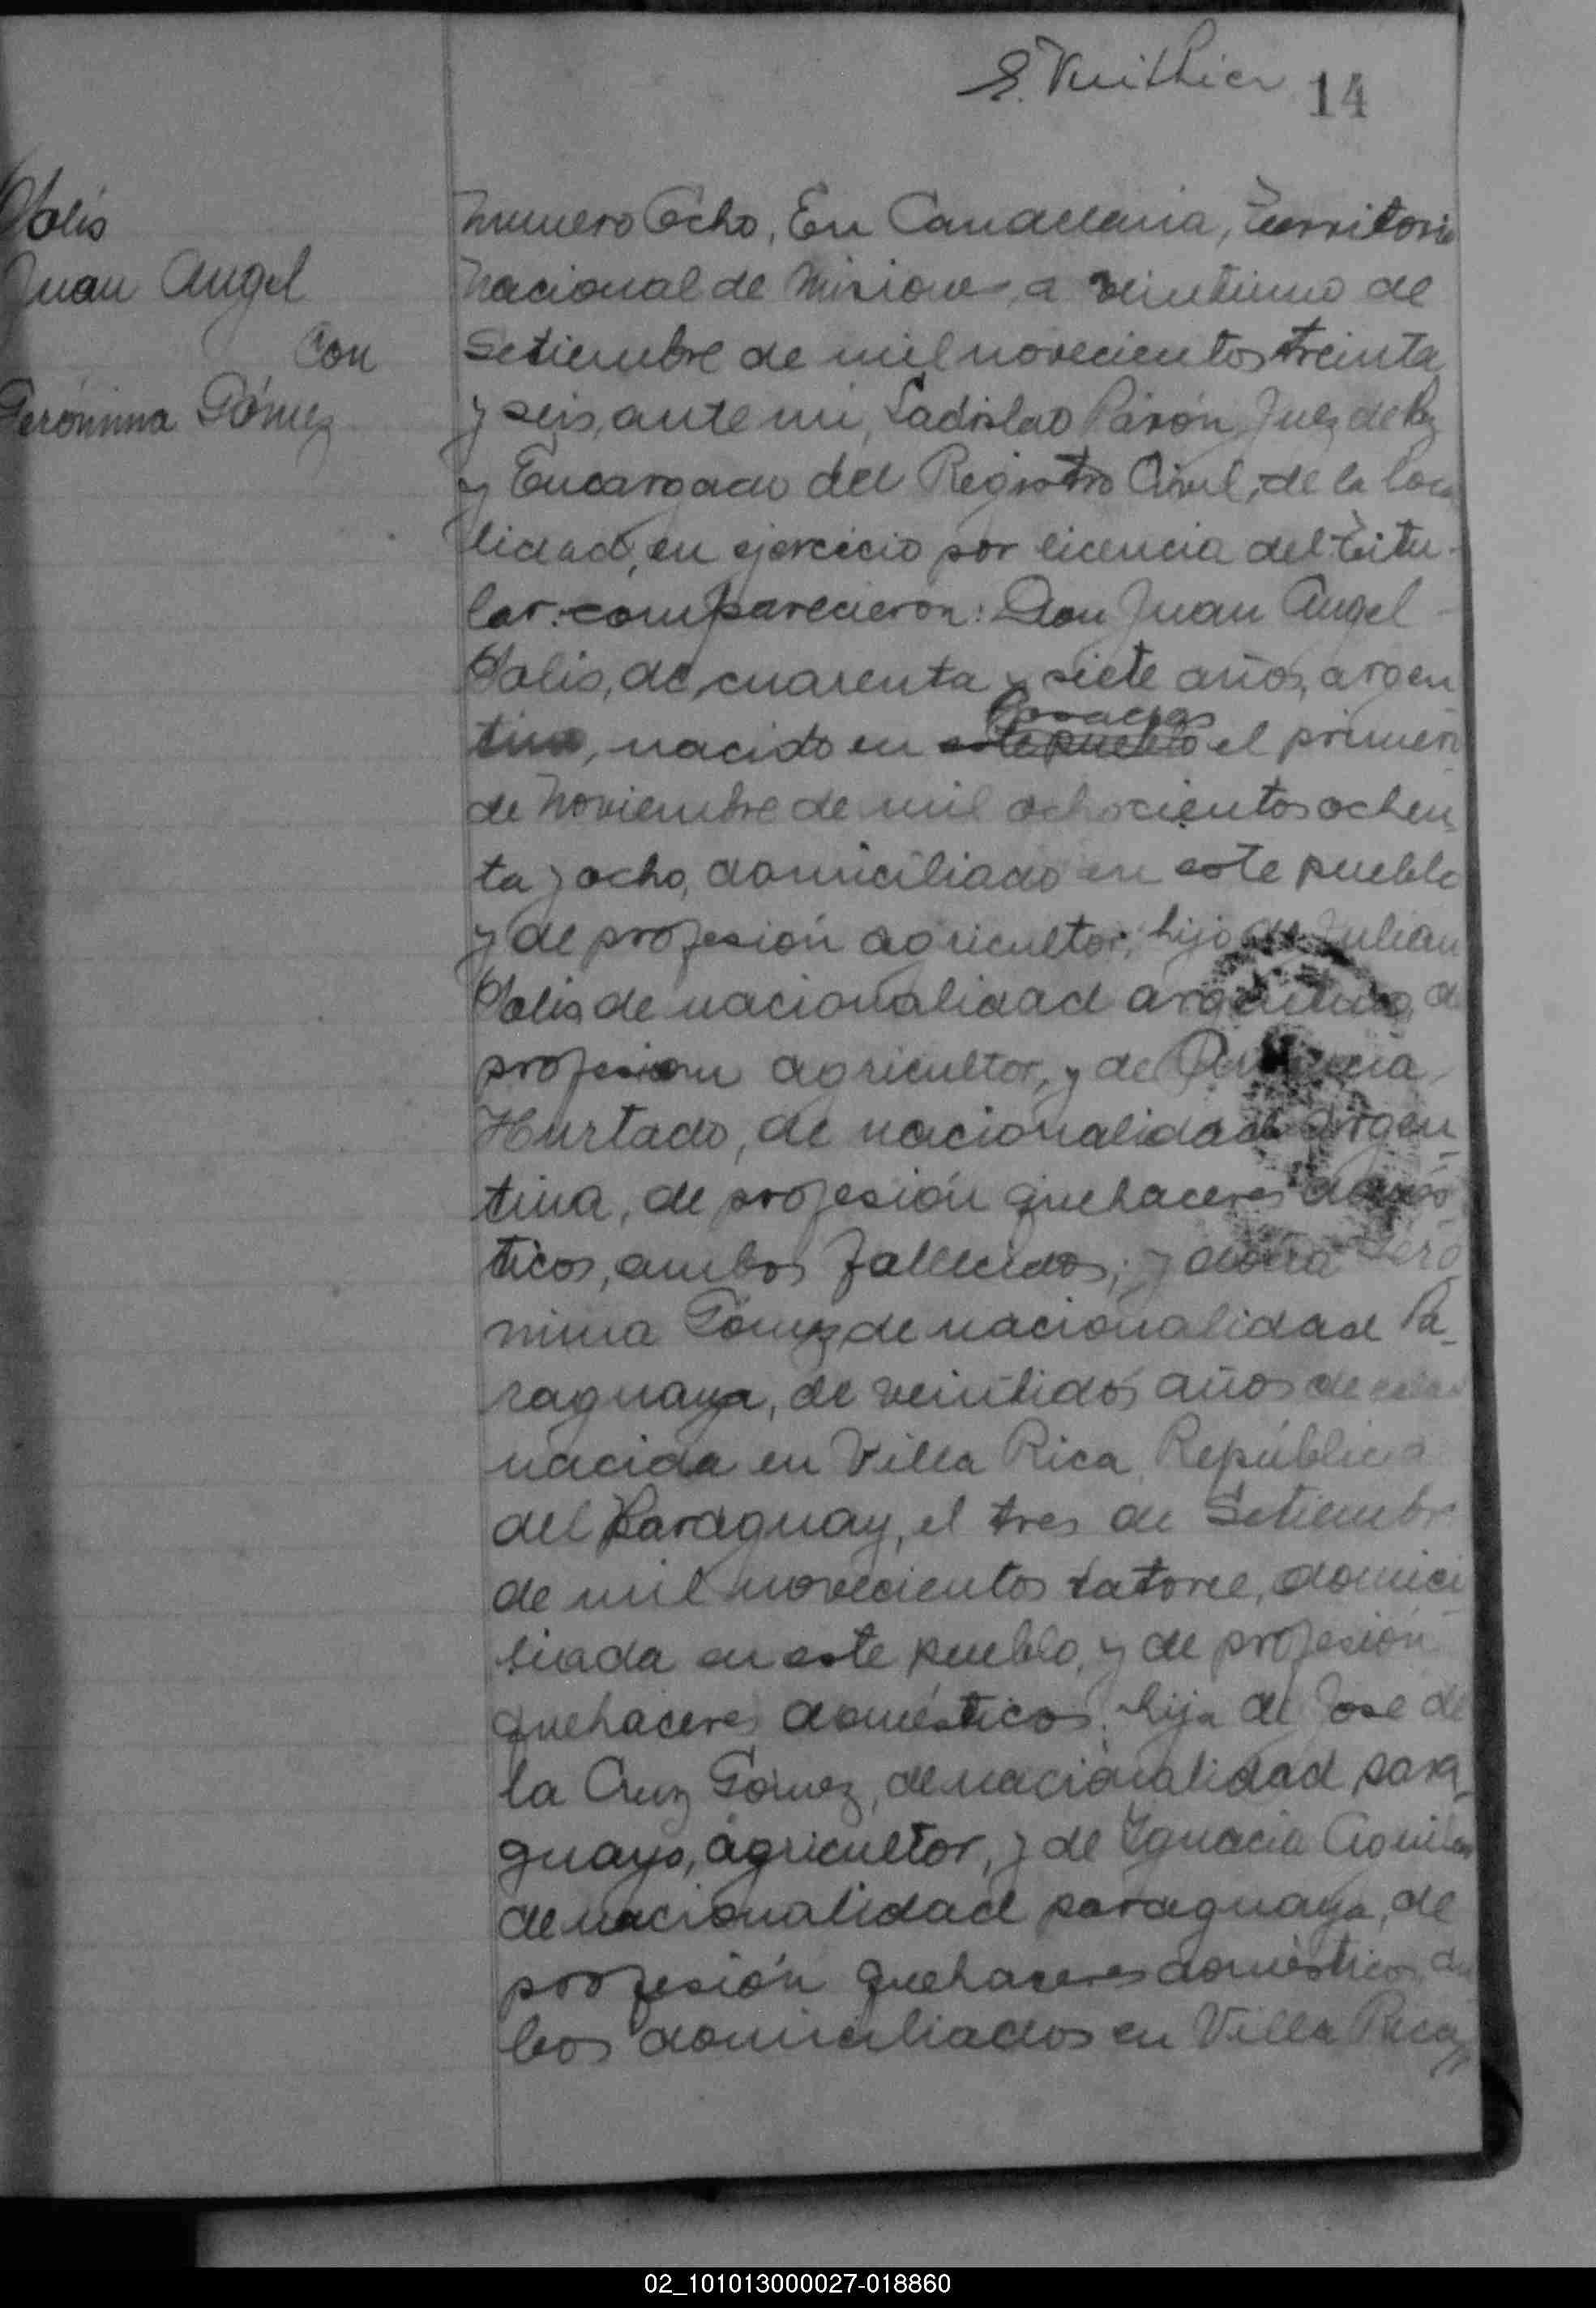 E. Vuithier 14
Solis
Juan Angel
Con
Gerónima Gómez
Número Ocho, En Candelaria, Territorio
Nacional de Misiones, a veintiuno de
Setiembre de mil novecientos treinta
y seis, ante mi, Ladislao Pavón Juez de Paz
y Encargado del Registro Civil, de la loca
lidad, en ejercicio por licencia del titu-
lar. comparecieron: Don Juan Angel
Solis, de cuarenta y siete años, argen
tino, nacido en este pueblo el primero
de Noviembre de mil ochocientos ochen
ta y ocho, domiciliado en este pueblo
y de profesión agricultor, hijo de Julian
Solis de nacionalidad argentino, de
profesion agricultor, y de
Hurtado, de nacionalidad argen
tina, de profesión quehaceres domés
ticos, ambos fallecidos; y doña Geró
nima Gómez de nacionalidad Pa-
raguaya, de veintidós años de edad
nacida en Villa Rica, República
del Paraguay, el tres de Setiembre
de mil novecientos catorce, domici
liada en este pueblo, y de profesión
quehaceres domésticos, hija de José de
la Cruz Gómez, de nacionalidad para-
guayo, agricultor, y de Ignacia Aquilar
de nacionalidad paraguaya, de
profesión quehaceres domésticos, am
bos domiciliados en Villa Rica,
02_101013000027-018860